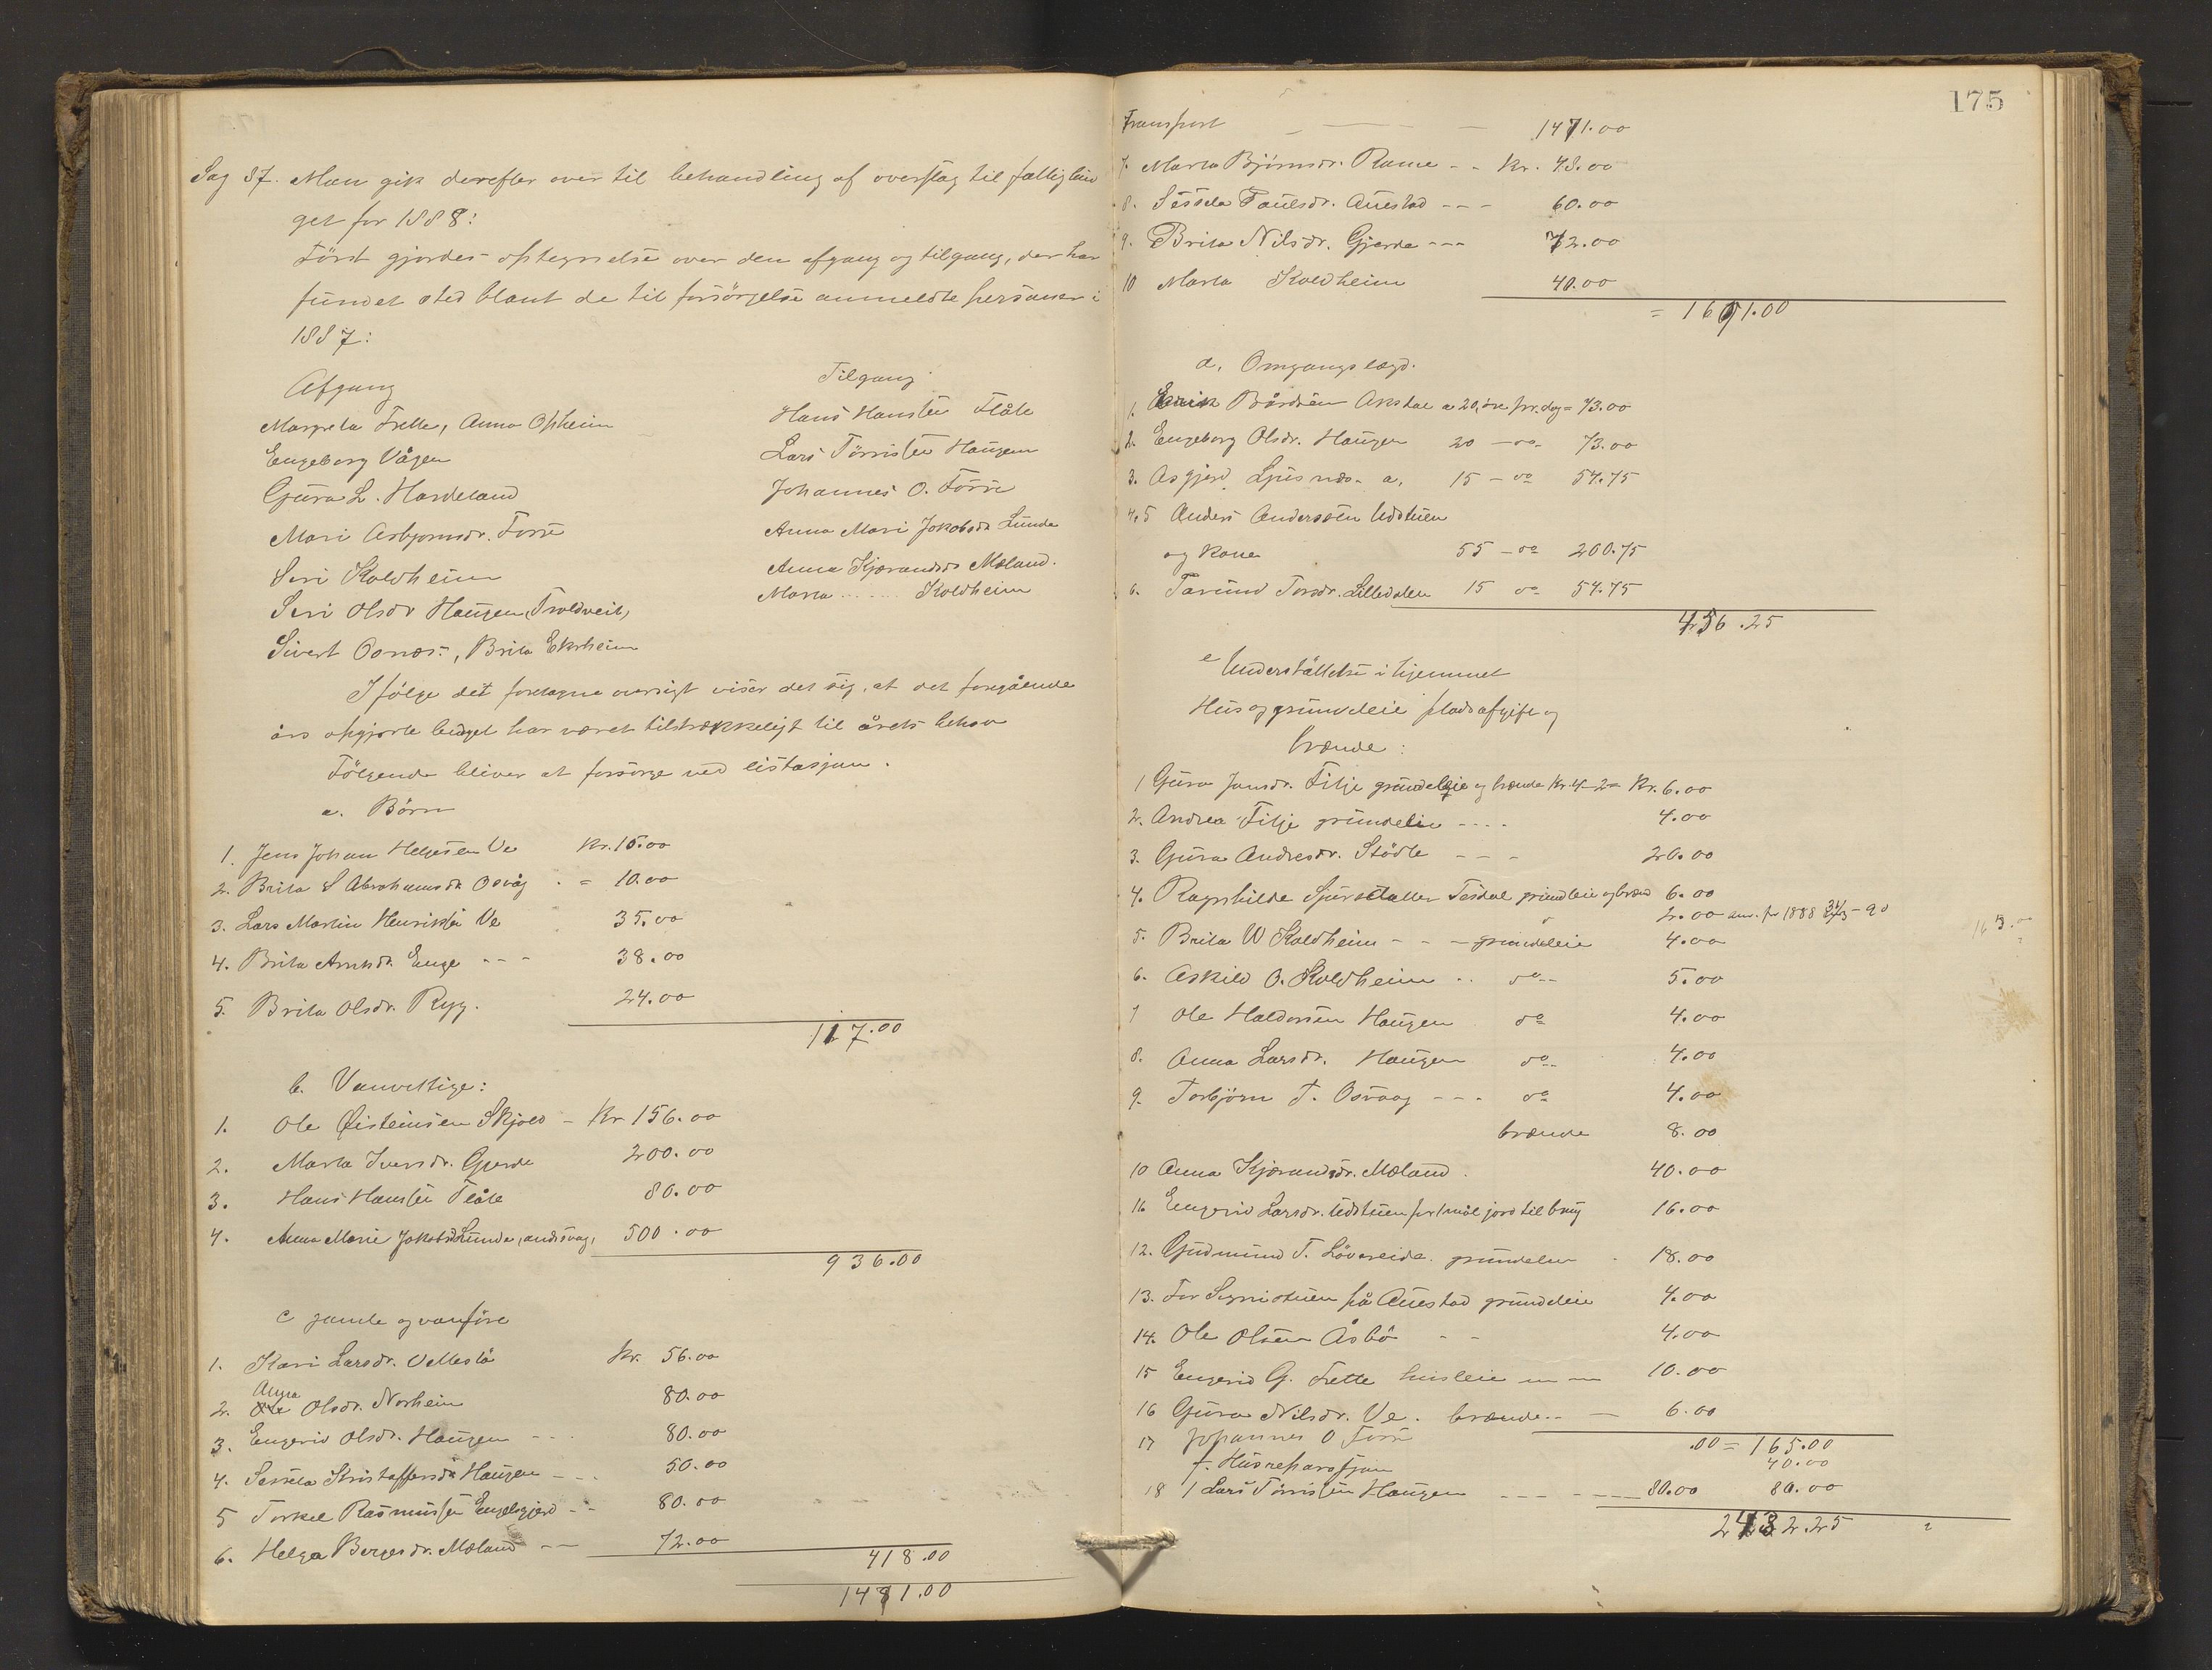 Sag 87. Man gik derefter over til behandling af overslag til fattigbud
get for 1888:
Först gjordes optegnelse over den afgang og tilgang, der har
fundet sted blant de til forsörgelse anmeldte personer i
1887:
Afgang
Margreta Frette, Anna Opheim
Engeborg Vågen
Gura L. Hardeland
Mari Asbjornsdr. Fosse
Siri Skoldheim
Siri Olsdr Haugen, Troldveit,
Sivert Osnes, Brita Ekrheim
Tilgang
Hans Hansen Flåte
Lars Törrissen Haugen
Johannes O. Fosse
Anna Mari Jakobsdr Lunde
Anna Kjærandsdr Mæland.
Marta ...... Skoldheim
I fölge det foretagne oversigt viser det sig, at det foregående
års opgjorte budget har været tilstrækkeligt til årets behov
Fölgende bliver at forsörge ved listasjon.
a. Börn
1. Jens Johan Helgesen Ve Kr. 10.00
2. Brita S Abrahamsdr Osvåg = 10.00
3. Lars Martin Henriksen Ve 35.00
4. Brita Arnesdr. Enge - - - 38.00
5. Brita Olsdr. Ryg. 24.00
117.00
b. Vanvittige:
1. Ole Øisteinsen Skjold - Kr 156.00
2. Marta Iversdr. Gjerde 200.00
3. Hans Hansen Flåte 80.00
4. Anna Marie Jakobsdr Lunde, andsvag, 500.00
936.00
c gamle og vanföre
1. Kari Larsdr. Vettestö Kr. 56.00
Anna
2. Ole Olsdr. Norheim 80.00
3. Engerid Olsdr. Haugen - - - 80.00
4. Sessela Kristoffersdr Haugen - - - 50.00
5 Torkel Rasmussen Engelsgjerd - - 80.00
6. Helga Bergesdr. Mæland - - 72.00
418.00
1471.00
175
Transport - - - 1471.00
7. Marta Björnsdr. Rame - - Kr. 48.00
8. Sessela Paulsdr. Austad - - - 60.00
9. Brita Nilsdr. Gjerde - - - 72.00
10 Marta Skoldheim 40.00
= 1691.00
d, Omgangslægd.
1. Erik Bårdsen Aksdal a 20, öre pr. dag = 73.00
2. Engeborg Olsdr. Haugen 20 - do - 73.00
3. Asgjerd Ljusnæs - a, 15 - do 54.75
4, 5 Anders Anderssen Udstuen
og kone 55 - do 200.75
6. Torund Torsdr. Lilledalen 15 do 54.75
456.25
e Understöttelse i hjemmet
Hus og grundleie pladsafgift og
brænde:
1 Gura Jonsdr. Tilje grundeleie og brænde Kr. 4 - 2 = Kr. 6.00
2. Andrea Tilje grundeleie - - - - 4.00
3. Gura Andresdr. Stödle - - - 20.00
4. Ragnhilde Sjursdatter Tesdal grundleie og brænd 6.00
2.00 anv. for 1888 31/3 - 90
5. Brita W Skoldheim - - - grundeleie 4.00
6. Askild O. Skoldheim - - do - - 5.00
7 Ole Haldorsen Haugen do 4.00
8. Anna Larsdr. Haugen do - - 4.00
9. Torbjörn T. Osvaag - - - do 4.00
brænde 8.00
10 Anna Kjærandsdr. Mæland. 40.00
11 Engerid Larsdr. Udstuen for 1 mål jord til brug 16.00
12. Gudmund T. Lövereide. grundeleie 18.00
13. For Signistuen på Austad grundeleie 4.00
14. Ole Olsen Åsbö - - 4.00
15 Engerid G. Frette husleie 10.00
16 Gura Nilsdr. Ve. brænde - - - 6.00
17 Johannes O Fosse .00 = 165.00
f. Husreparasjon 40.00
18 1 Lars Törrissen Haugen - - - - 80.00 80.00
2432.25